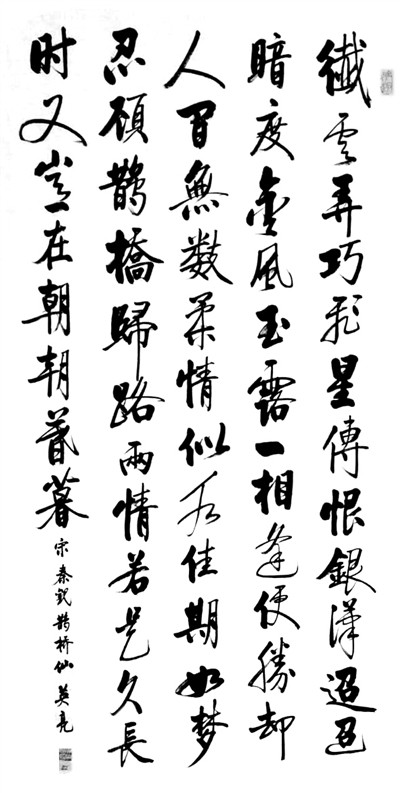 纖雲弄巧飛星傳恨銀漢迢迢
暗度金風玉露一相逢便勝却
人間無数柔情似水佳期如梦
忍顧鵲橋歸路兩情若是久長
时又豈在朝朝暮暮
宋秦觀鵲桥仙 英亮